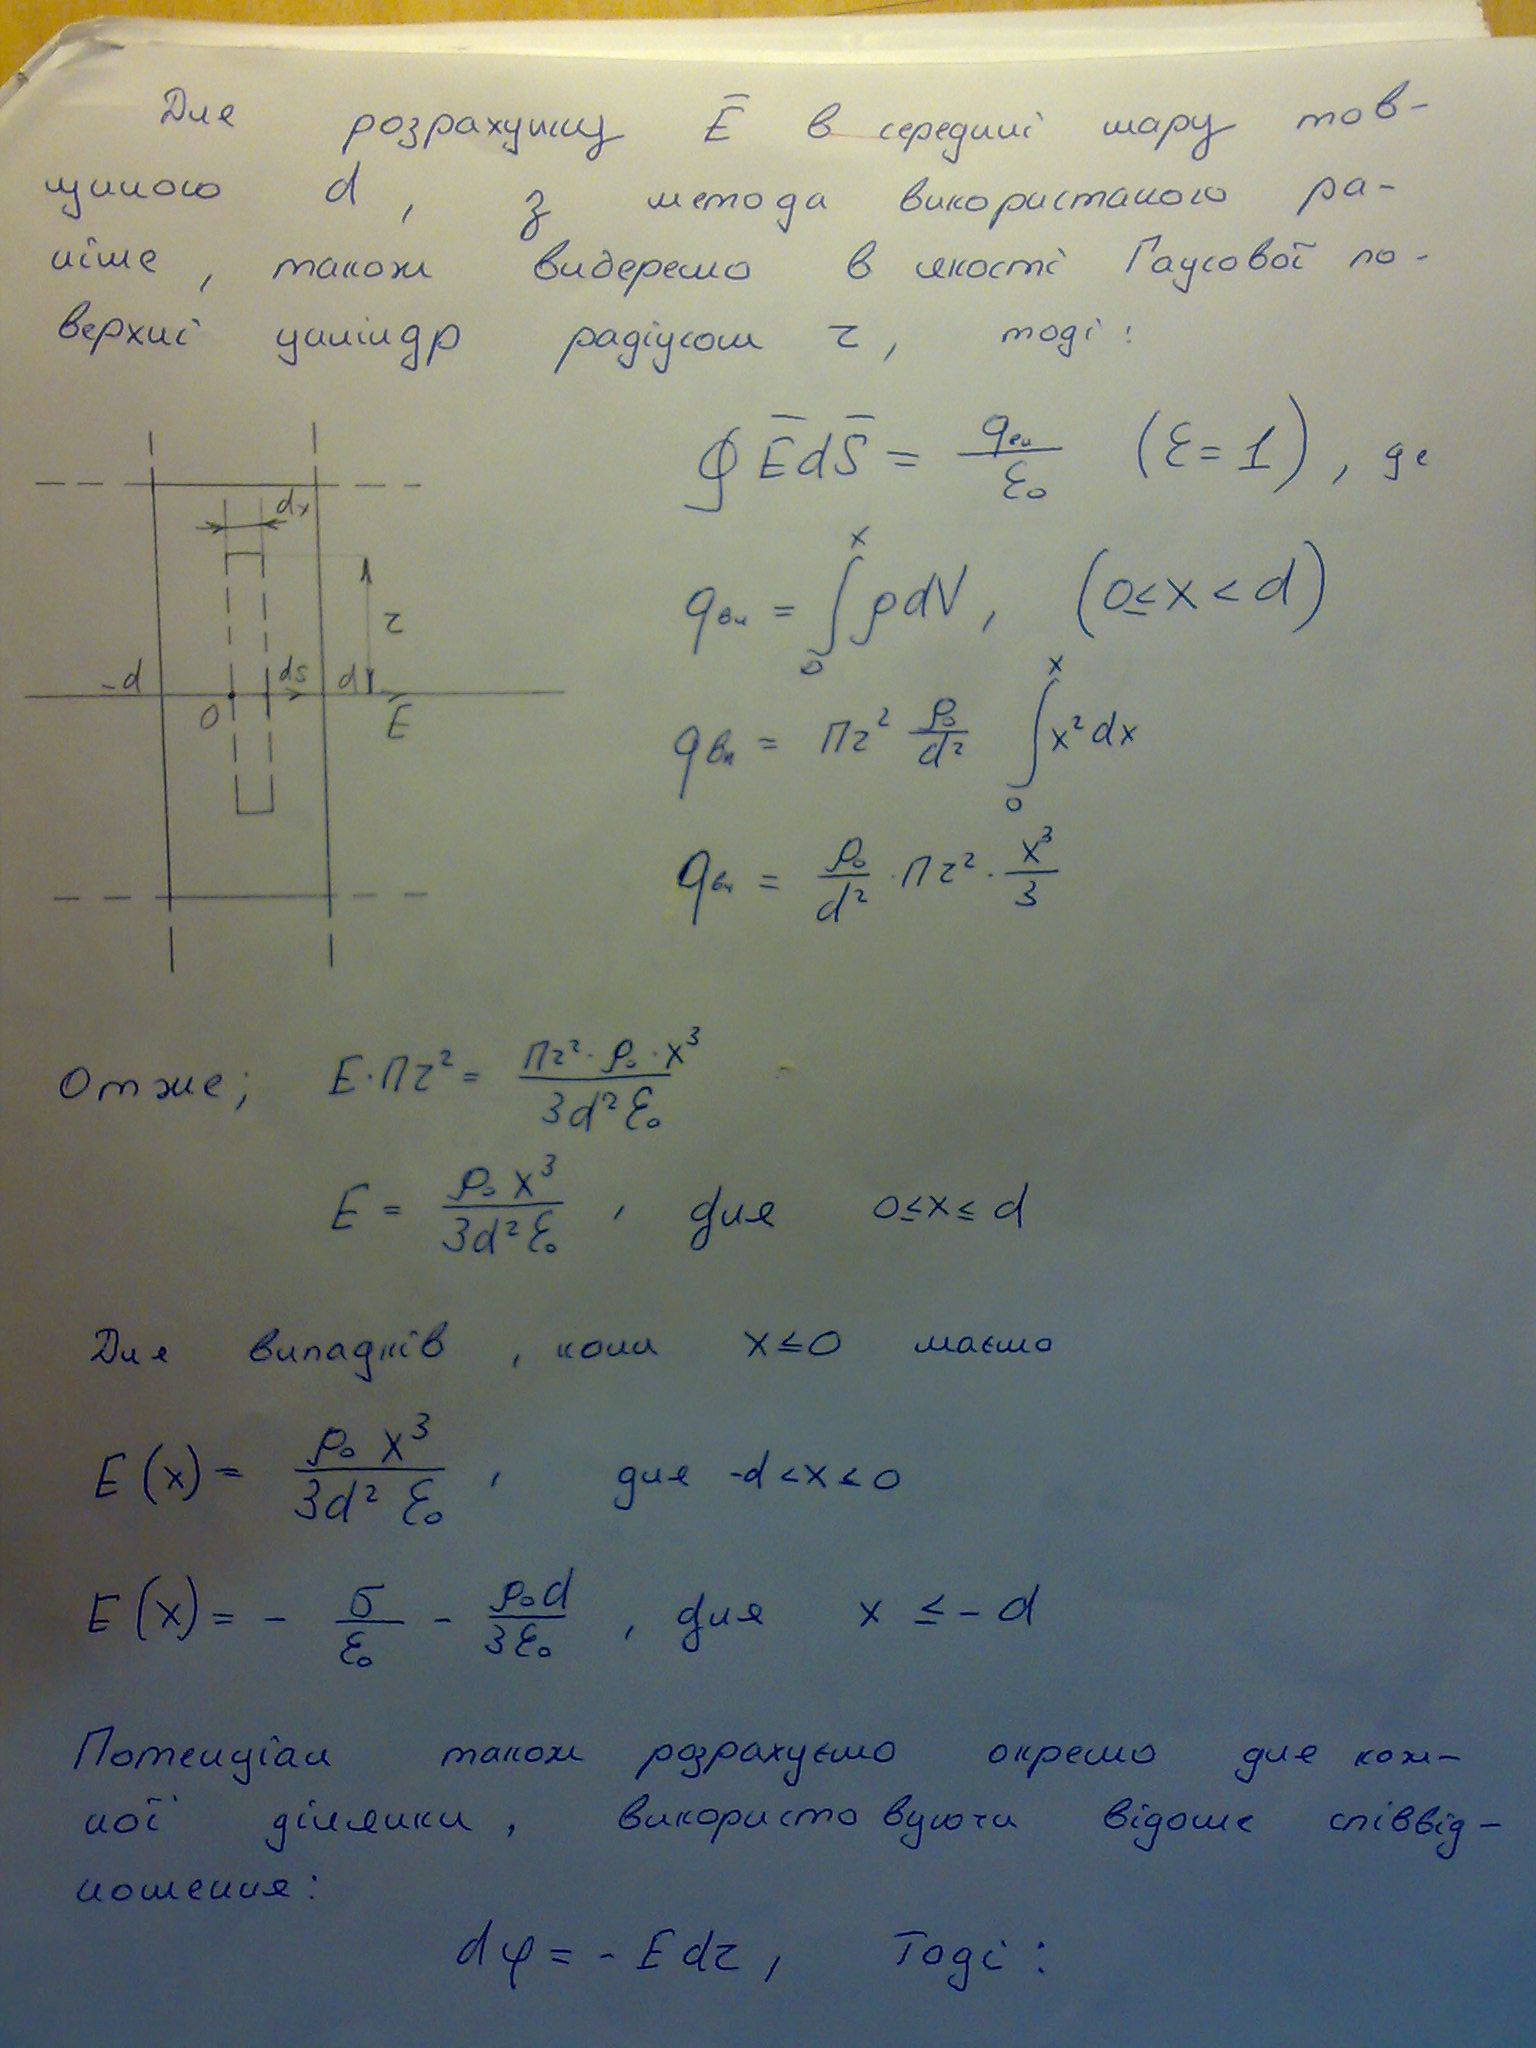 Для розрахунку E̅ в середині шару тов-
щиною d, з метода використаного ра-
ніше, також виберемо в якості Гаусової по-
верхні циліндр радіусом r, тоді:
∮E̅dS̅ = qвн/ε₀ (ε=1), де
qвн = ∫₀ˣ ρdV, (0≤x<d)
qвн = πr² ρ₀/d² ∫₀ˣ x²dx
qвн = ρ₀/d² · πr² · x³/3
dx
r
-d
dS
d
0
E̅
Отже; E·πr² = πr²·ρ₀·x³/3d²ε₀
E = ρ₀x³/3d²ε₀, для 0≤x≤d
Для випадків, коли x≤0 маємо
E(x) = ρ₀x³/3d²ε₀, для -d<x≤0
E(x) = - σ/ε₀ - ρ₀d/3ε₀, для x≤-d
Потенціал також розрахуємо окремо для кож-
ної ділянки, використовуючи відоме співвід-
ношення:
dφ = -Edr, Тоді: